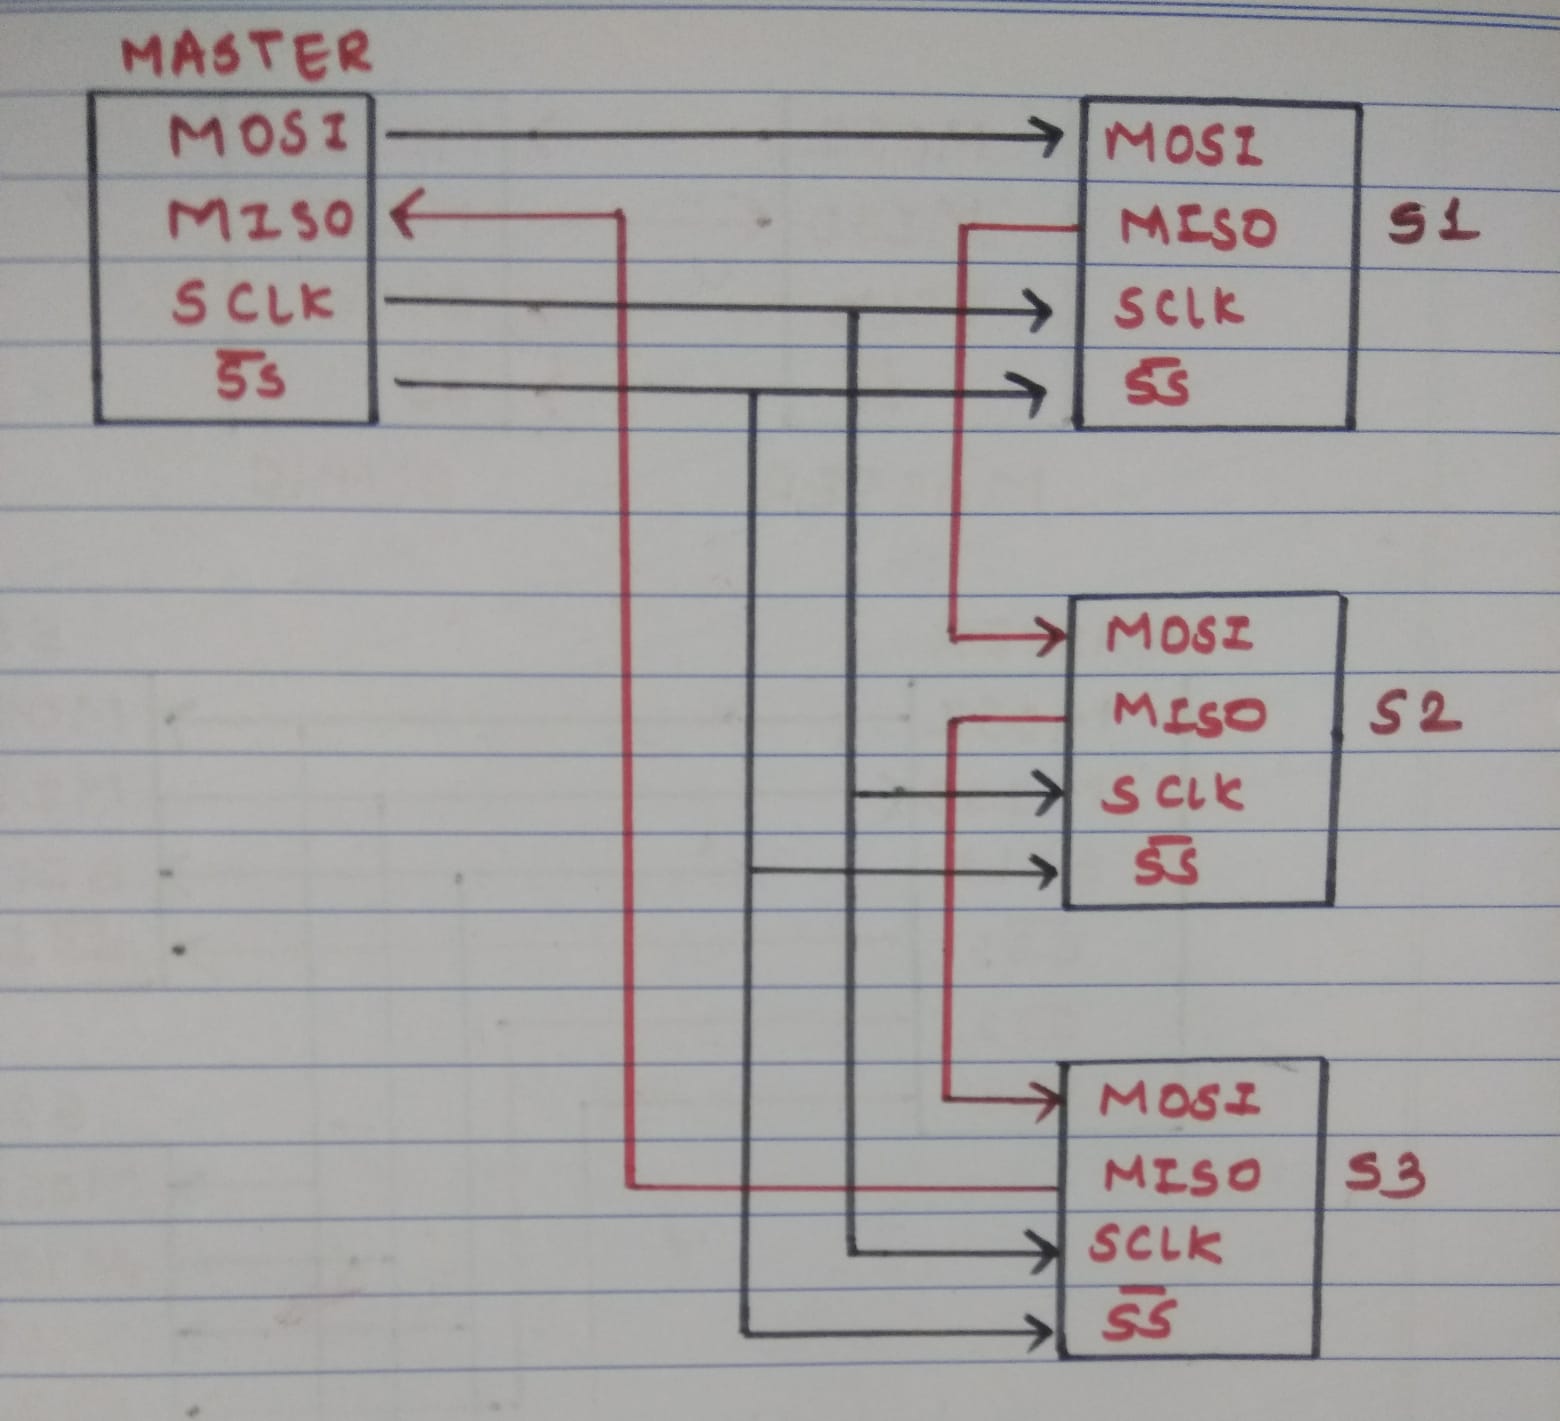 MASTER
MOSI
MISO
SCLK
S̅S̅
MOSI
MISO
SCLK
S̅S̅
S1
MOSI
MISO
SCLK
S̅S̅
S2
MOSI
MISO
SCLK
S̅S̅
S3